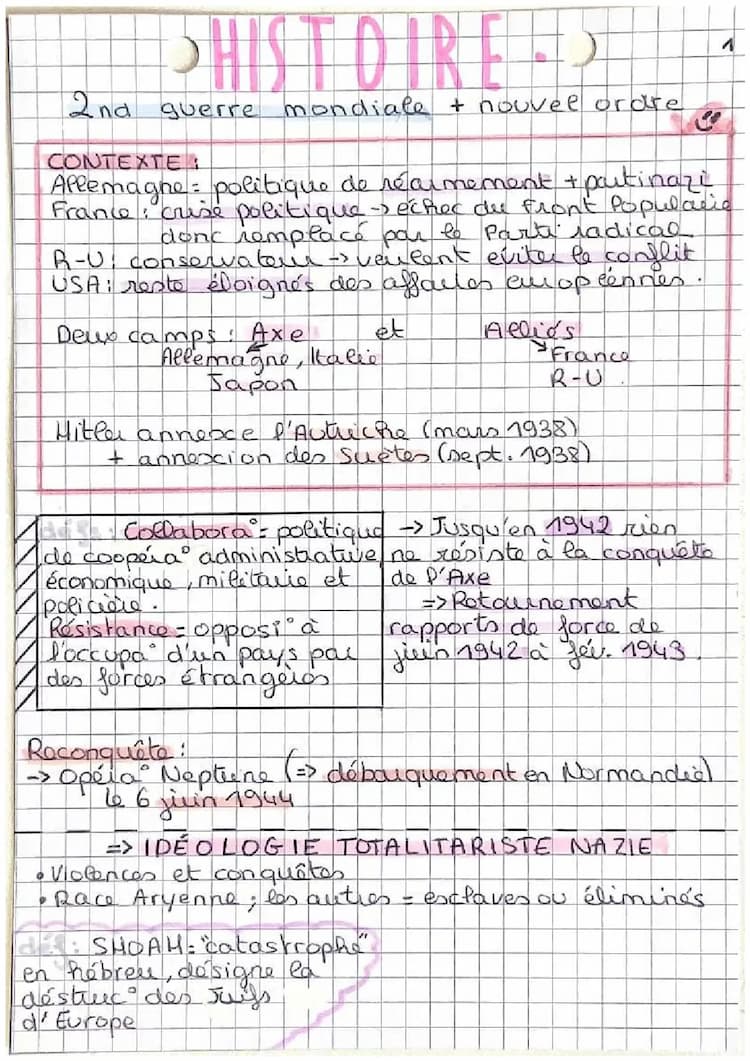 HISTOIRE.
1
2nd guerre mondiale + nouvel ordre
CONTEXTE :
Allemagne = politique de réarmement + parti nazi
France : crise politique -> échec du Front Populaire
donc remplacé par le Parti radical
R-U : conservateur -> veulent éviter le conflit
USA : reste éloignés des affaires européennes.
Deux camps : Axe et Alliés
Allemagne, Italie
Japon
France
R-U
Hitler annexe l'Autriche (mars 1938)
+ annexion des Suètes (sept. 1938)
déf : Collabora° = politique
de coopéra° administrative,
économique, militaire et
policière.
Résistance = opposi° à
l'occupa° d'un pays par
des forces étrangères
-> Jusqu'en 1942 rien
ne résiste à la conquête
de l'Axe
=> Retournement
rapports de force de
juin 1942 à fév. 1943.
Reconquête :
-> Opéra° Neptune (=> débarquement en Normandie)
le 6 juin 1944
=> IDÉOLOGIE TOTALITARISTE NAZIE
• Violences et conquêtes
• Race Aryenne ; les autres = esclaves ou éliminés
déf : SHOAH = "catastrophe"
en hébreu, désigne la
déstruc° des Juifs
d'Europe